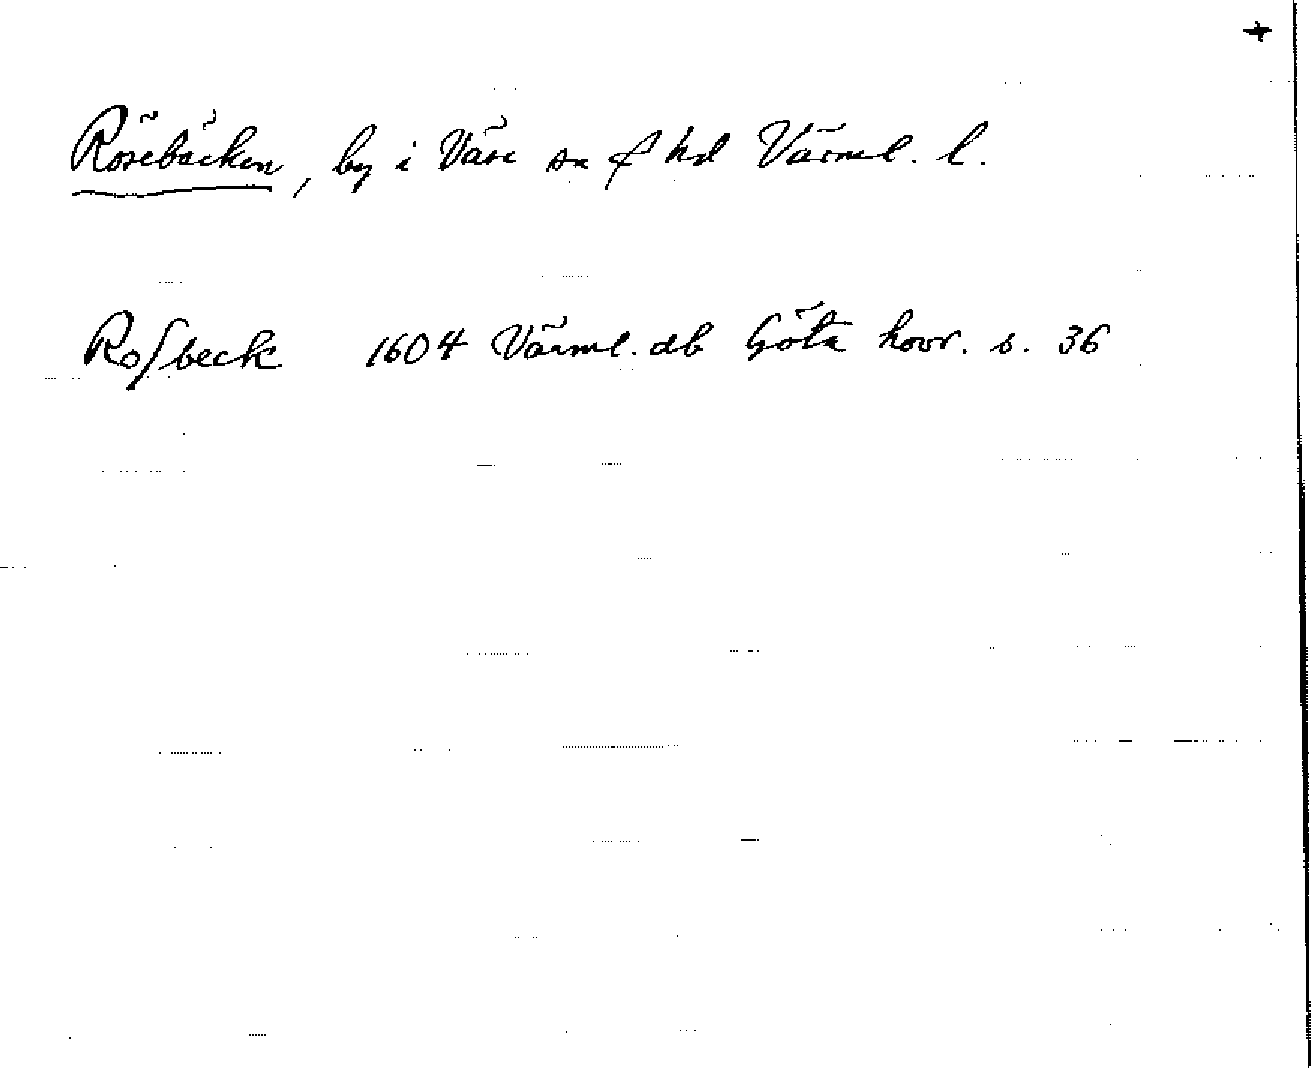 +
Rösebäcken, by i Väse sn & hd Värml. l.
Roſbeck 1604 Värml. db Göta hovr. s. 36